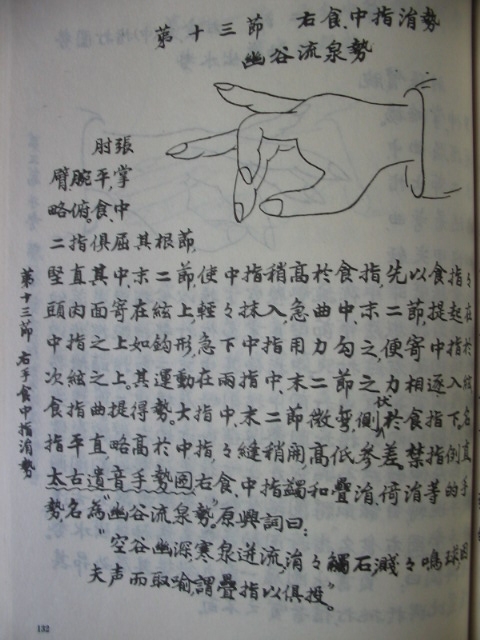 第十三節 右食、中指涓勢
幽谷流泉勢
肘張
臂、腕平,掌
略俯。食中
二指俱屈其根節,
堅直其中、末二節,使中指稍高於食指,先以食指々
頭肉面寄在絃上,輕々抹入,急曲中、末二節,提起在
中指之上如鈎形,急下中指用力勾之,便寄中指於
次絃之上。其運動在兩指中、末二節之力相逐入絃
食指曲提得勢。大指中、末二節微彎,側伏於食指下,名
指平直略高於中指,々縫稍開,高低參差。禁指倒直
太古遺音手勢图右食、中指蠲和疊涓、倚涓等的手
勢名為"幽谷流泉勢",原興詞曰:
"空谷幽深,寒泉迸流,涓々觸石,濺々鳴球,因
夫声而取喻,謂疊指以俱投。"
第十三節 右手食中指涓勢
132